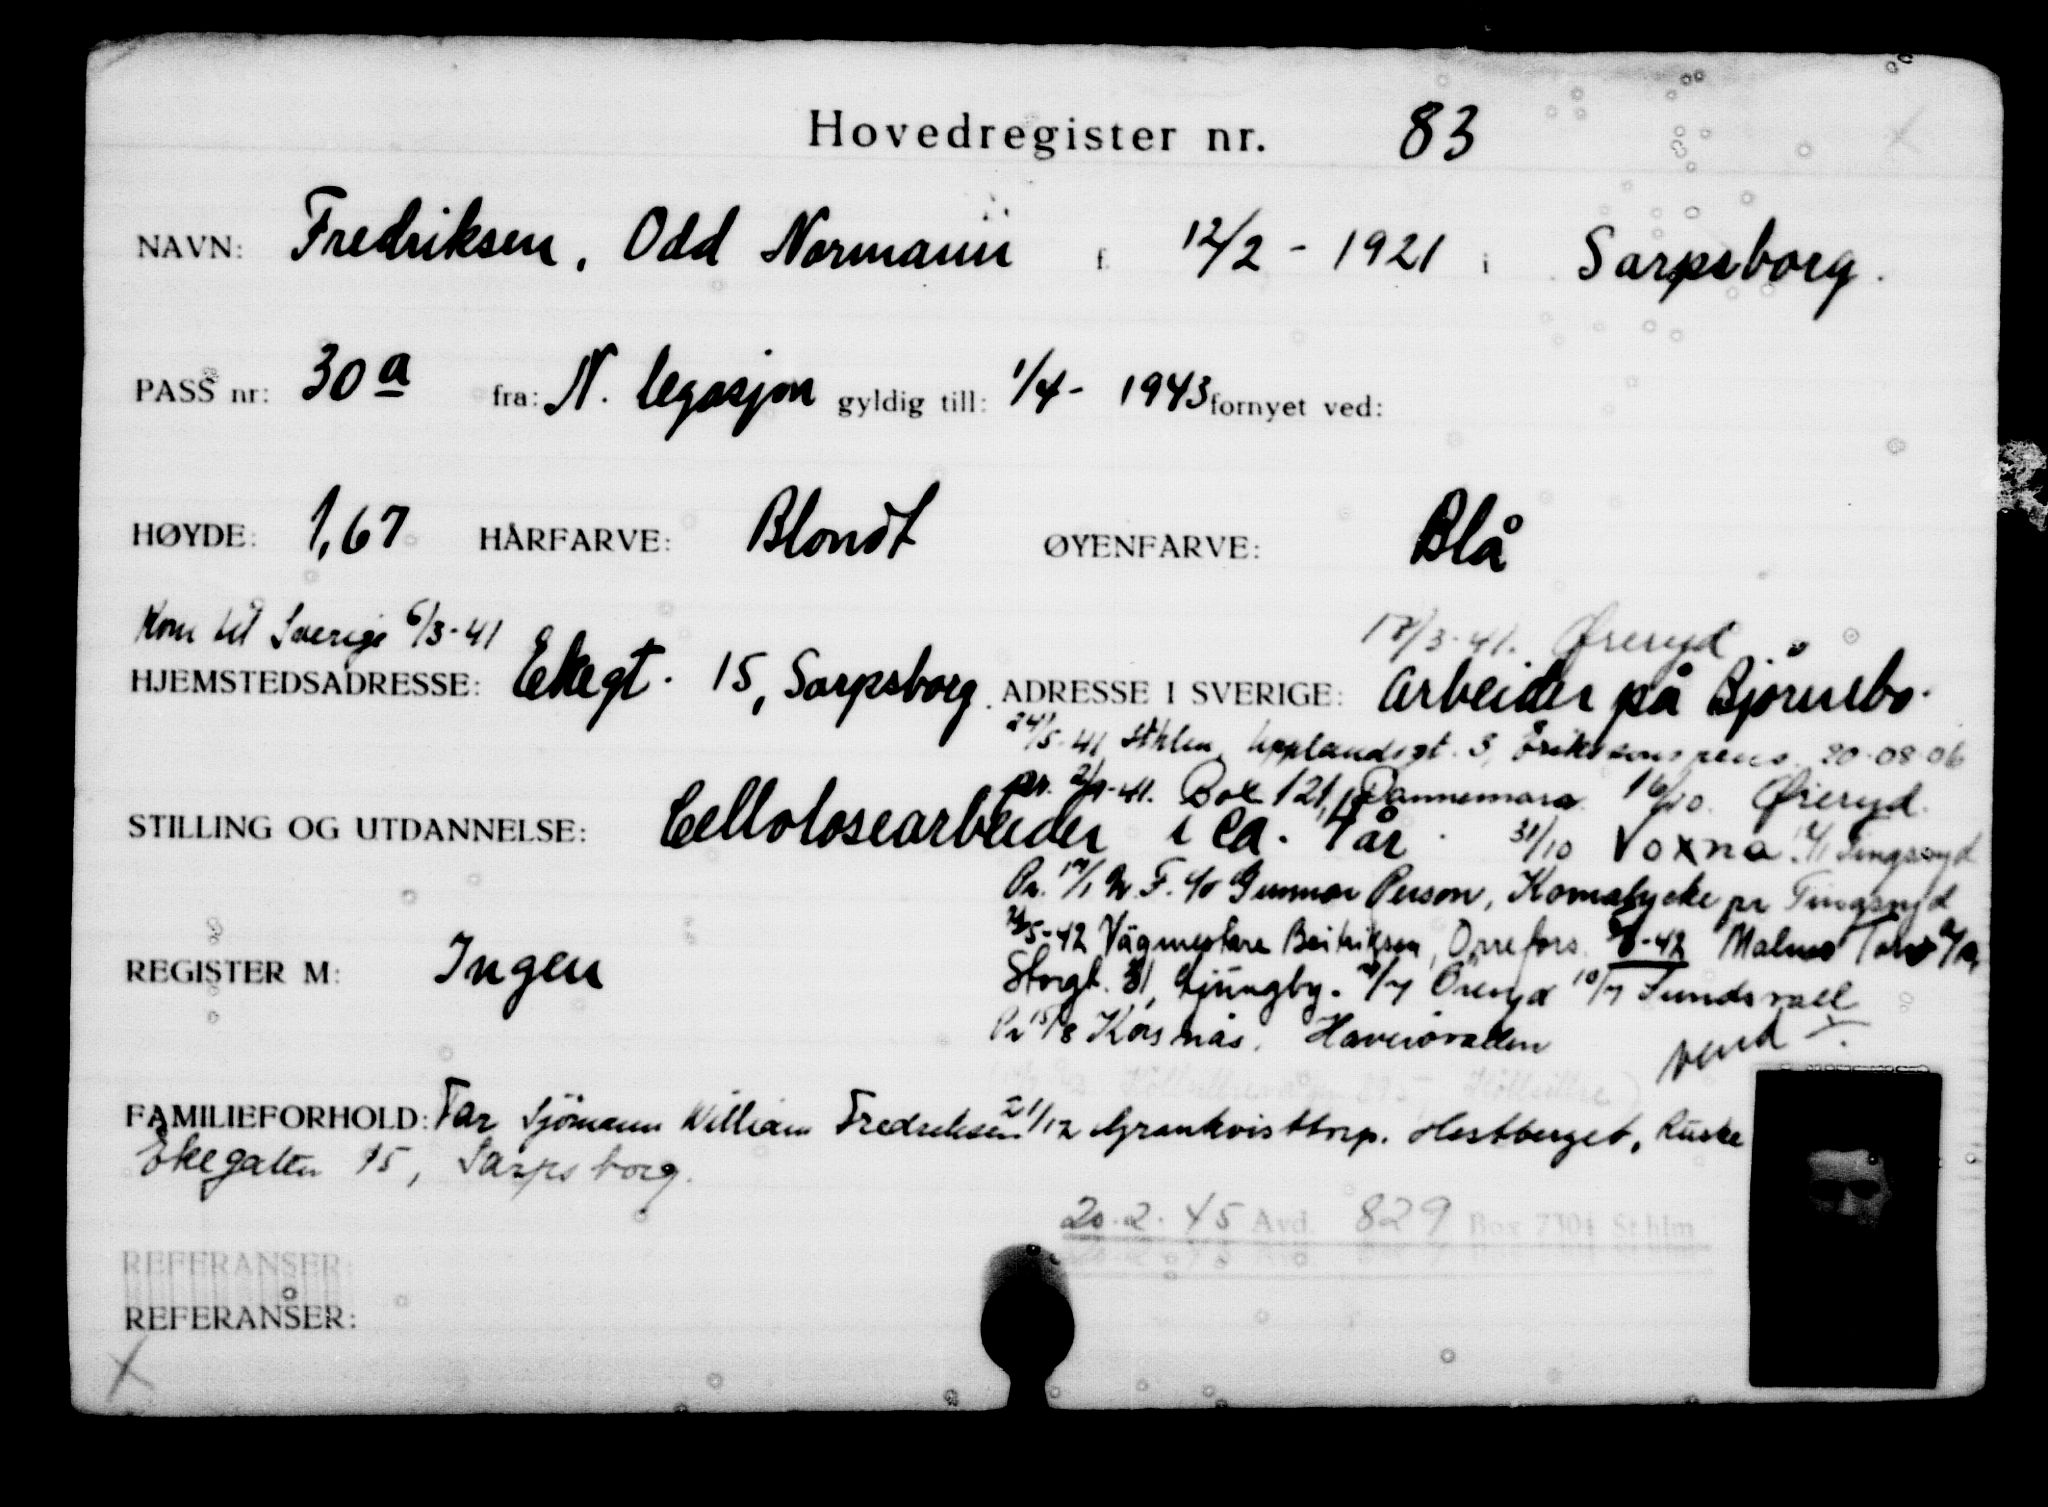 Hovedregister nr. 83
NAVN: Fredriksen, Odd Normann f. 12/2 - 1921 i Sarpsborg.
PASS nr: 30 a fra: N. legasjon gyldig till: 1/4 - 1943 fornyet ved:
HØYDE: 1,67 HÅRFARVE: Blondt ØYENFARVE: Blå
Kom til Sverige 6/3-41
17/3-41. Øreryd
HJEMSTEDSADRESSE: Ekegt. 15, Sarpsborg. ADRESSE I SVERIGE: Arbeider på Björnebo.
24/5-41 Sthlm, Upplandsgt. 3, Erikssons pens. 20-08-06
pr. 2/9-41. Box 121, Dannemora 16/10. Øreryd.
STILLING OG UTDANNELSE: Cellolosearbeider i ca. 4 år.
31/10 Voxna. Tingsryd
Pr. 17/1 Gunnar Person, pr Tingsryd
REGISTER M: Ingen
5-42 Vägmestare Orrefors. -42 Malmö
Storgt. 31, Ljungby. /7 Öreryd 10/7 Sundsvall
Pr 15/8 Korsnäs. Haverövallen
vend
FAMILIEFORHOLD: Far Sjömann William Fredriksen
21/12 Grankvisttorp. Hestberget,
Ekegaten 15, Sarpsborg.
20.2.45 Avd. 829 Box 7304 Sthlm
REFERANSER:
REFERANSER: